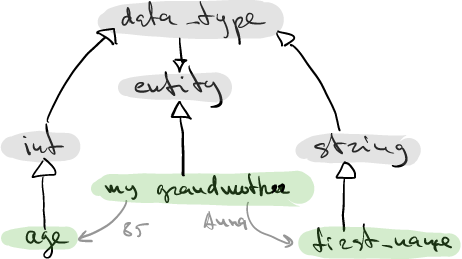 data_type
entity
int
string
my grandmother
85
Anna
age
first_name